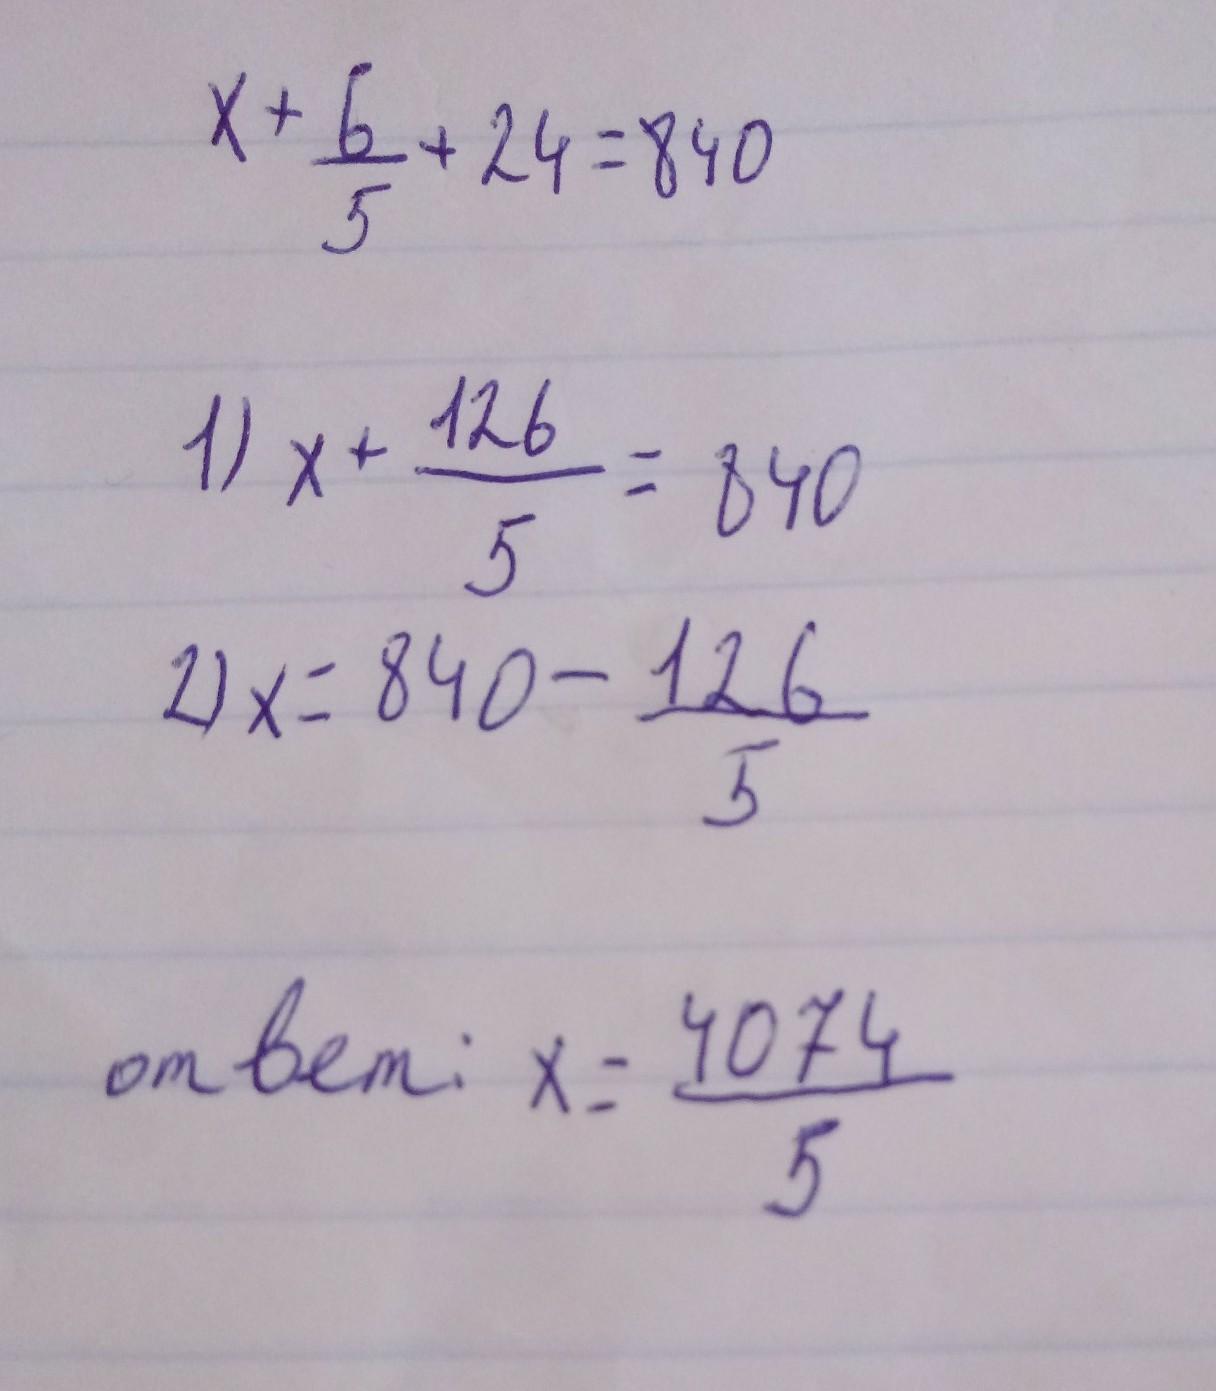 x + 6/5 + 24 = 840
1) x + 126/5 = 840
2) x = 840 - 126/5
ответ: x = 4074/5